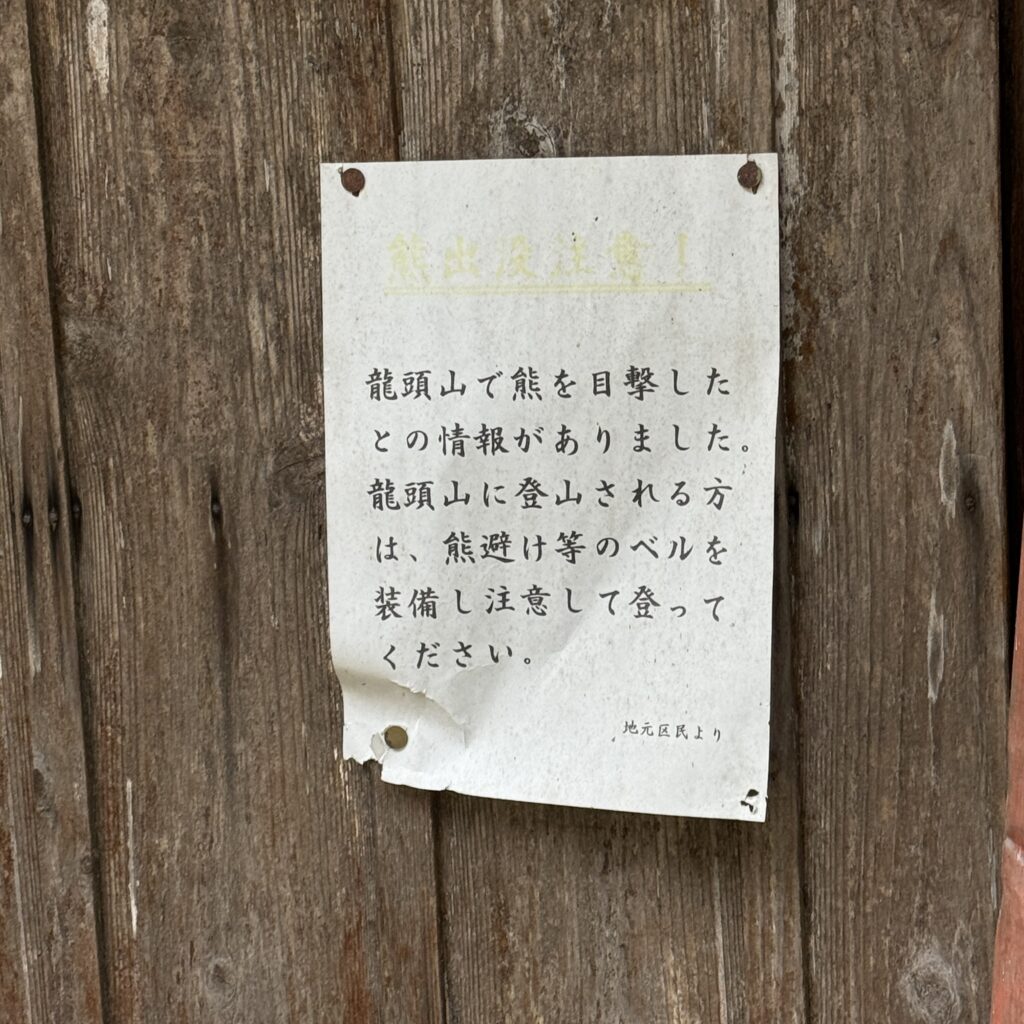 熊出没注意!
龍頭山で熊を目撃した
との情報がありました。
龍頭山に登山される方
は、熊避け等のベルを
装備し注意して登って
ください。
地元区民より